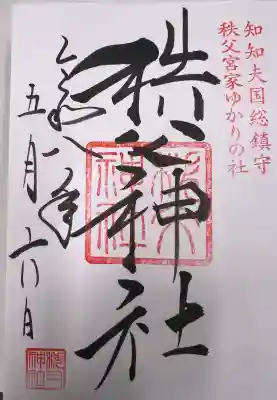 知知夫国総鎮守
秩父宮家ゆかりの社
秩父神社
令和八年
五月 日